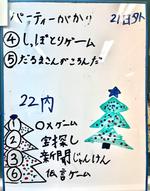 パーティーがかり 21日外
④しっぽとりゲーム
⑤だるまさんがころんだ
22内
① ○×ゲーム
② 宝探し
③ 新聞じゃんけん
⑥ 伝言ゲーム